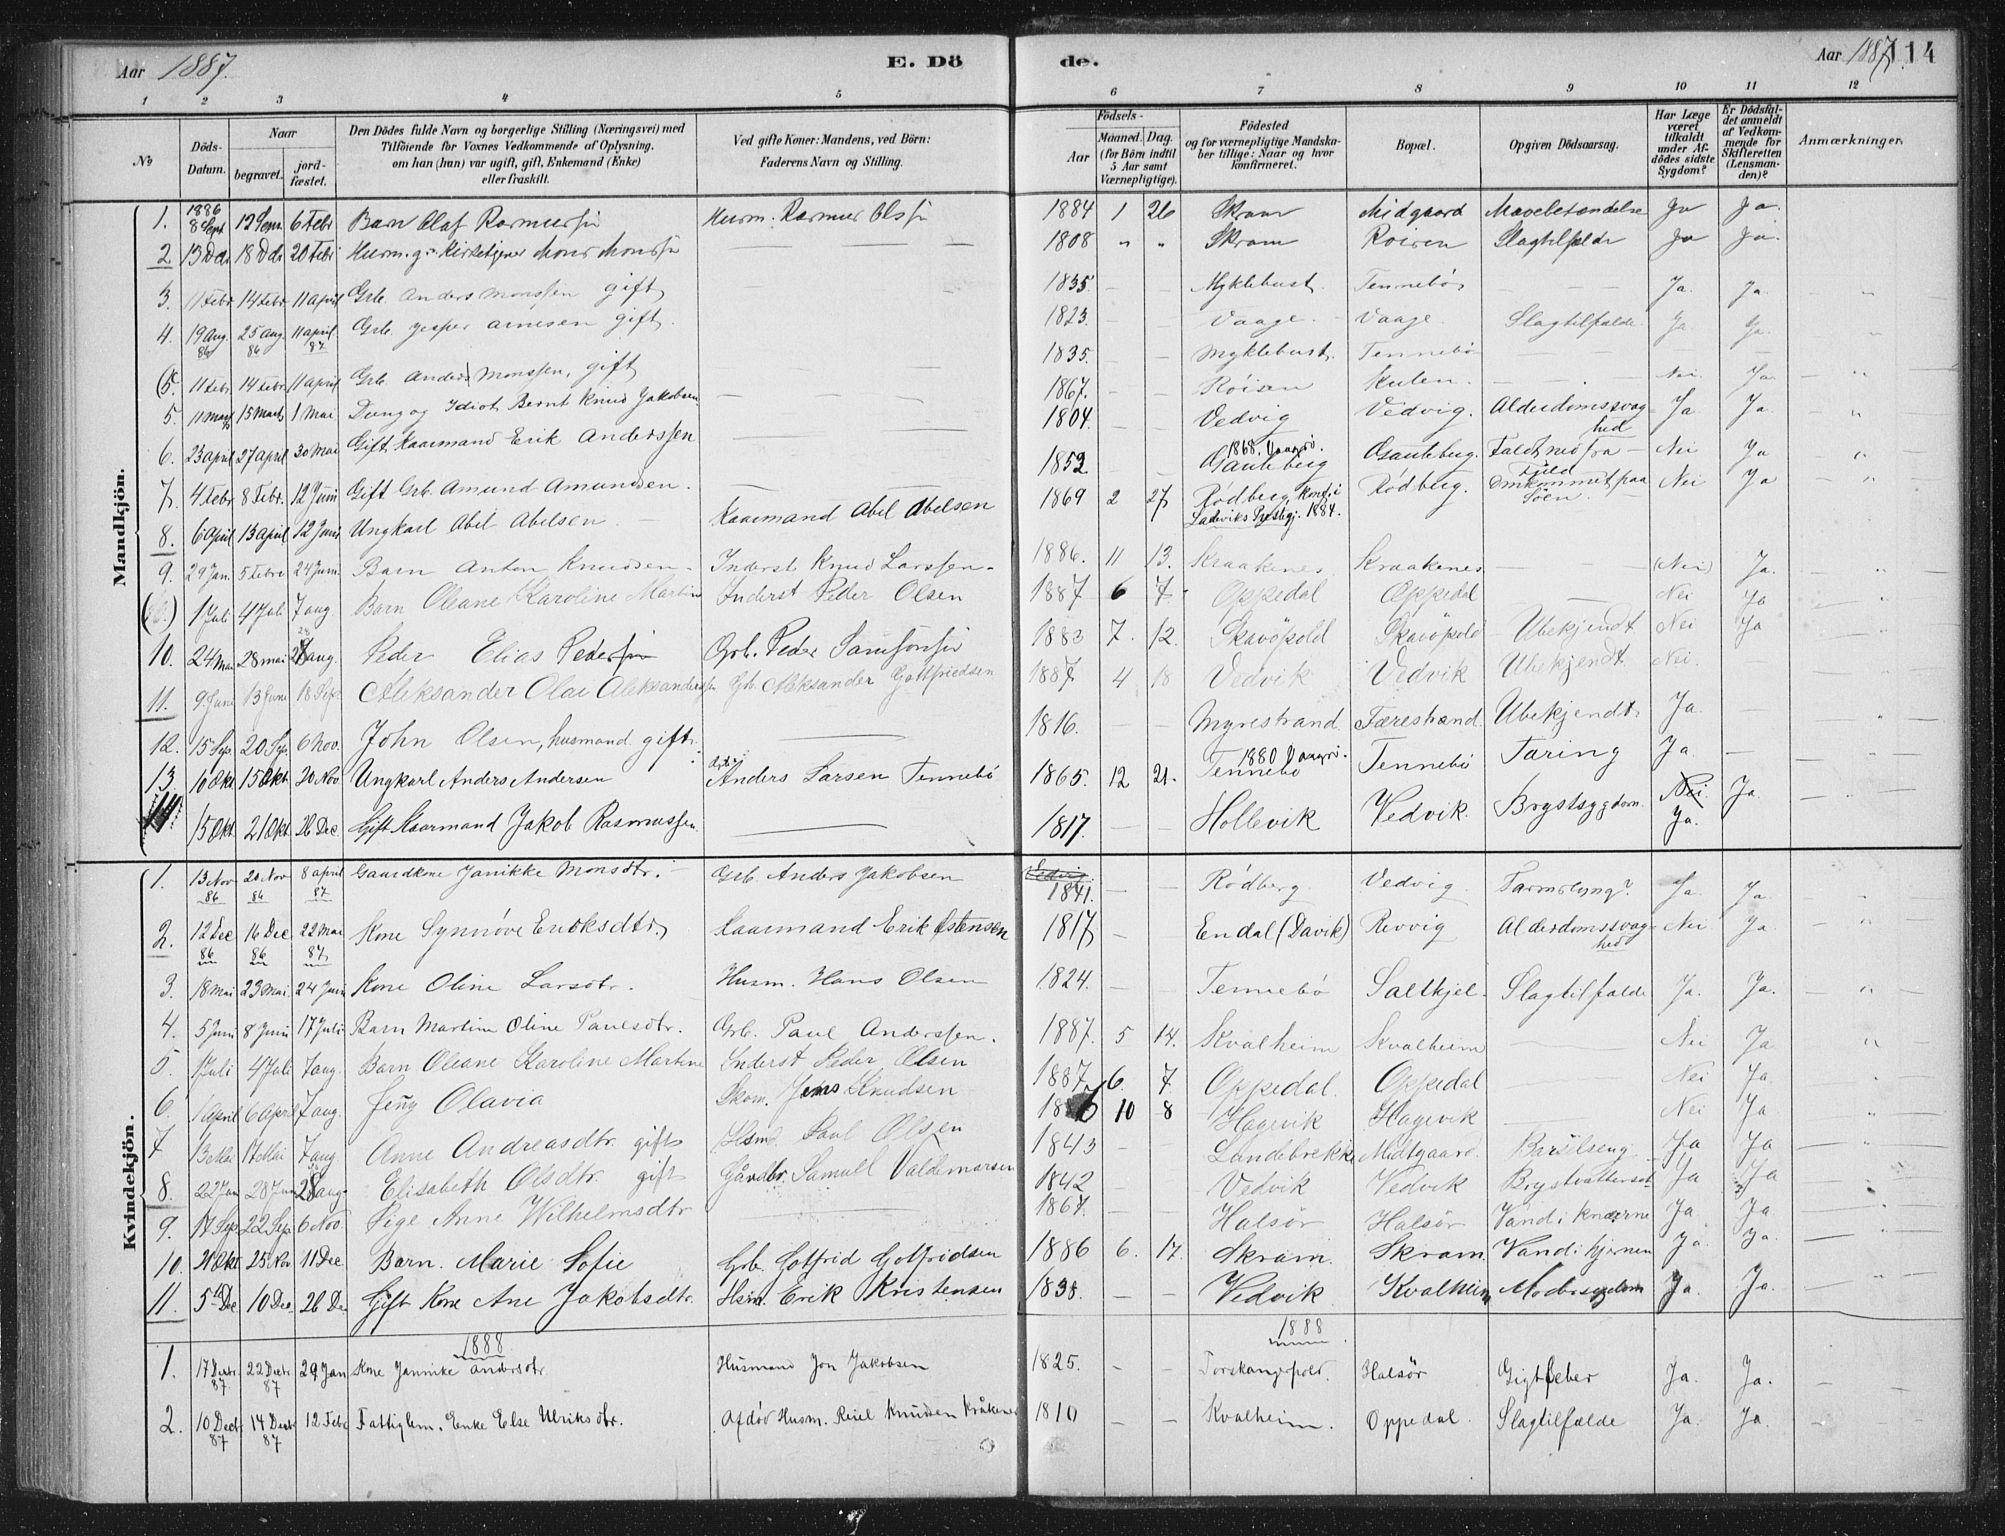 Aar 1887.
E. Dö
de.
Aar 1887.
114
1 2 3 4 5 6 7 8 9 10 11 12
No
Döds-Datum.
Naar
begravet.
jord-fæstet.
Den Dödes fulde Navn og borgerlige Stilling (Næringsvei) med
Tilföiende for Voxnes Vedkommende af Oplysning.
om han (hun) var ugift, gift, Enkemand (Enke)
eller fraskilt.
Ved gifte Koner: Mandens, ved Börn:
Faderens Navn og Stilling.
Födsels-
Aar
Maaned. Dag.
(for Börn indtil
5 Aar samt
Værnepligtige).
Födested
og for værnepligtige Mandska-
ber tillige: Naar og hvor
konfirmeret.
Bopæl.
Opgiven Dödsaarsag.
Har Læge
været
tilkaldt
under Af-
dödes sidste
Sygdom?
Er Dödsfal-
det anmeldt
af Vedkom-
mende for
Skifteretten
(Lensman-
den)?
Anmærkninger.
Mandkjön.
1. 1886 8 Sept 12 Sept 6 Febr Barn Olaf Rasmussen Husm. Rasmus Olsen 1884 1 26 Skram Midgaard Mavebetændelse Ja Ja.
2 13 Dcb 18 Dcb 20 Febr Husm. g. Kirketjener Mons Monsen — — 1808 " " Skram Roisen Slagtilfælde Ja Ja.
3. 11 Febr. 14 Febr. 11 april Grb. Anders Monssen gift — — 1835. — — Myklebust. Tennebö — Ja. Ja. "
4. 19 Aug. 86 25 aug. 86 11 april. 87 Grb. Jesper Arnesen gift. — — 1823. — — Vaage. Vaage. Slagtilfælde. Ja Ja. "
(5. 11 Febr. 14 Febr. 11 april Grb. Anders Monssen, gift — — 1835. — — Myklebust. Tennebö — — —
5. 11 Marts 15 Marts 1 Mai Dreng og Idiot Bernt Knud Jakobsen — — 1867. — — Röisen Kulen. — Nei. Ja. "
6. 23 april 27 april 30 Mai Gift Kaarmand Erik Anderssen — — 1804. — — Vedvig Vedvig. Alderdomssvaghed Ja Ja. "
7. 4 Febr 8 Febr. 12 Juni Gift Grb. Amund Amundsen. — 1852. — — 1868. Vaagsö. Gauteberg Gauteberg. Faldt ned fra Fjeld Nei Ja "
8. 6 April 13 april 12 Juni Ungkarl Abel Abelsen — Kaarmand Abel Abelsen 1869 2 27 Rödberg, Konf. i Ladviks Prestegj. 1884. Rödberg. Omkommet paa Söen. Nei Ja
9. 29 Jan. 5 Febr 24 Juni. Barn Anton Knudsen. Inderst Knud Larssen. 1886. 11 13. Kraakenes Kraakenes — (Nei) Ja. "
1 Juli 4 Juli 7 aug. Barn Oleane Karoline Martine Inderst Peder Olsen 1887 6 7 Oppedal Oppedal — Nei Ja "
10. 24 Mai 28 mai 28 aug. Peder Elias Pedersen Grb. Peder Samsonsen 1883 7. 12. Skavöpold Skavöpold Ubekjendt Nei Ja "
11. 9 June 13 June 18 Sep. Aleksander Olai Aleksandersen Grb. Aleksander Gottfriedsen 1887 4 18 Vedvik Vedvik Ubekjendt Nei. —
12. 15 Sep. 20 Sep. 6 Nov. John Olsen, husmand gift. — 1816. — — Myrestrand. Færestrand. Ubekjendt. Ja. — "
13. 10 Okt. 15 Okt. 20 Nov Ungkarl Anders Andersen Anders Larsen Tennebö 1865. 12 21. 1880 Vaagsö. Tennebö Tennebö Taring Ja — —
14. 15 Okt. 21 Okt 26 Dec. Gift Kaarmand Jakob Rasmussen. — 1817. — — Hollevik Vedvik. Brystsygdom. Nei. Ja. Ja. "
Kvindekjön.
1. 13 Nov 86 20 Nov 86 8 april 87 Gaardkone Janikke Monsdtr. Grb. Anders Jakobsen Vedvig. 1841. — — Rödberg Vedvig. Tarmslyng? Ja. Ja "
2. 12 Dec 86 16 Dec 86 22 Mai 87. Kone Synnöve Eriksdtr. Kaarmand Erik Östensen 1817 — Endal (Davik) Revvig Alderdomssvaghed Nei Ja "
3. 18 Mai 23 Mai. 24 Juni Kone Oline Larsdtr. Husm. Hans Olsen 1824. — — Tennebö Saltkjel. Slagtilfælde Ja. Ja. "
4. 5 Juni 8 Juni 17 Juli Barn Martine Oline Paulsdtr. Grb. Paul Anderssen. 1887. 5 14. Kvalheim Kvalheim — Nei Ja "
5. 1 Juli 4 Juli 7 aug. Barn Oleane Karoline Martine Inderst Peder Olsen 1887. 6. 7 Oppedal. Oppedal — Nei Ja
6. 1 April 6 April 7 aug. Jeny Olavia Skom. Jens Knudsen 1886 10 8 Hagevik Hagevik — Nei Ja "
7 13 Mai 17 Mai 7 aug Anne Andreasdtr. gift Hsmd. Paul Olsen 1843 — — Lundebrekke Midtgaard. Barselseng Ja Ja "
8. 22 Jun 28 Jun 28 aug. Elisabeth Olsdtr. gift Gårdbr. Samuel Valdemarsen 1842 — Vedvik Vedvik Brystvattersot Ja Ja "
9. 17 Sep. 22 Sep. 6 Nov. Pige Anne Wilhelmsdtr — 1867. — Halsör Halsör Vand i Knæerne Ja. Ja. "
10. 21 Okt 25 Nov. 11 Dec Barn. Marie Sofie Grb. Gotfrid Gotfridsen 1886 6. 17. Skram. Skram. Vand i hjernen Ja. Ja. —
11. 5 Dec 10 Dec. 26 Dec Gift Kone Ane Jakobsdtr. Hsm. Erik Kristensen 1838. — — Vedvik Kvalheim Modersygdom Ja. Ja. "
1888 1888.
1. 17 Decbr. 87 22 Decbr 87 29 Jan Kone Jannike Andersdtr. Husmand Jon Jakobsen 1825. — — Torskangerpold. Halsör Gigtfeber Ja. Ja. —
2. 10 Decbr. 87 14 Decbr. 87 12 Febr. Fattiglem. Enke Else Ulriksdtr. Afdöd Husm. Reiel Knudsen Kråkenes 1810 — Kvalheim. Oppedal. Slagtilfælde Ja. Ja. —